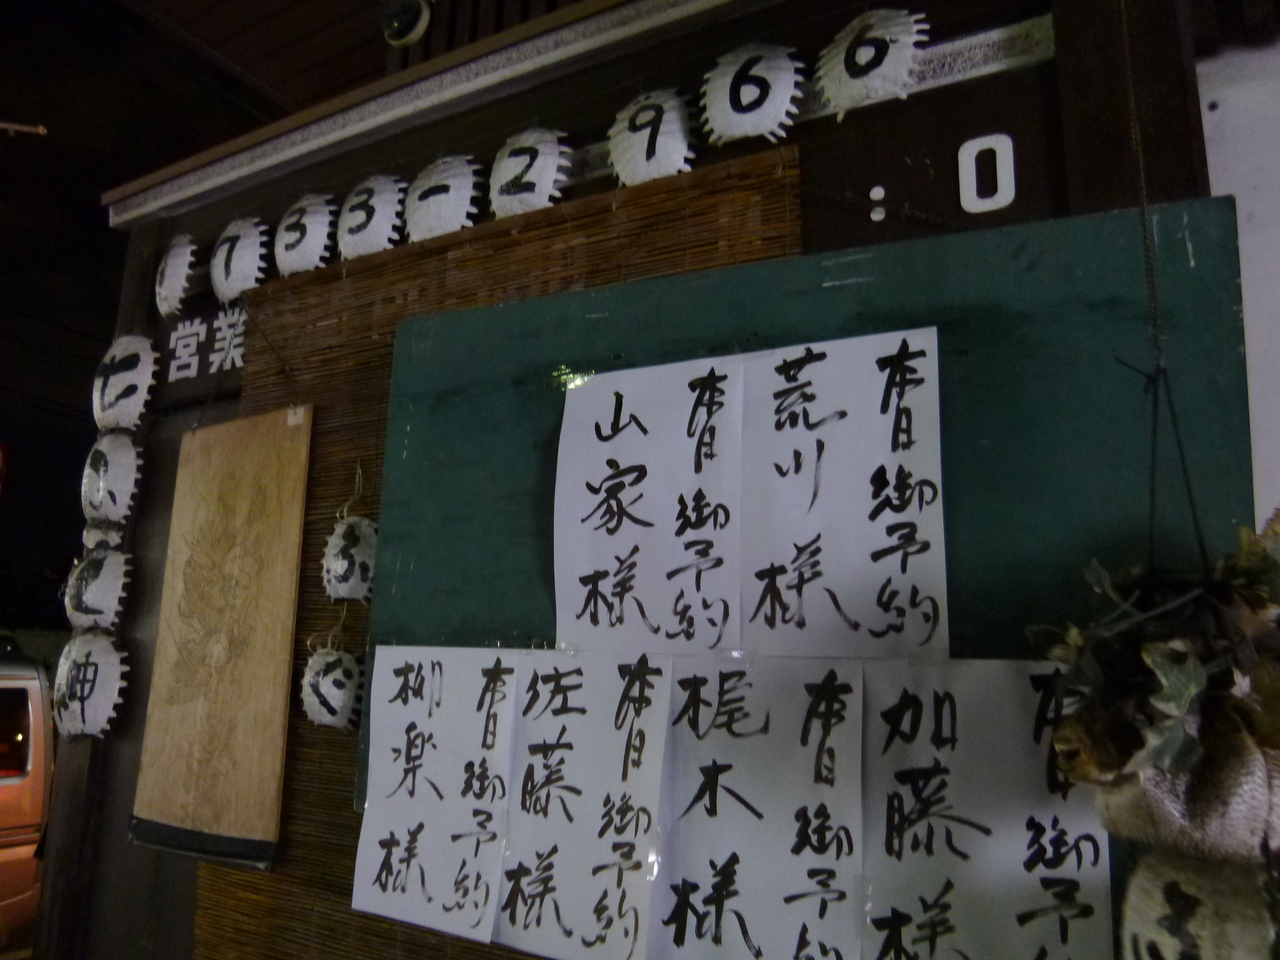 733-2966
営業
:0
七
の
神
ふ
ぐ
本日御予約
荒川様
本日御予約
山家様
本日御予約
加藤様
本日御予約
梶木様
本日御予約
佐藤様
本日御予約
柳楽様